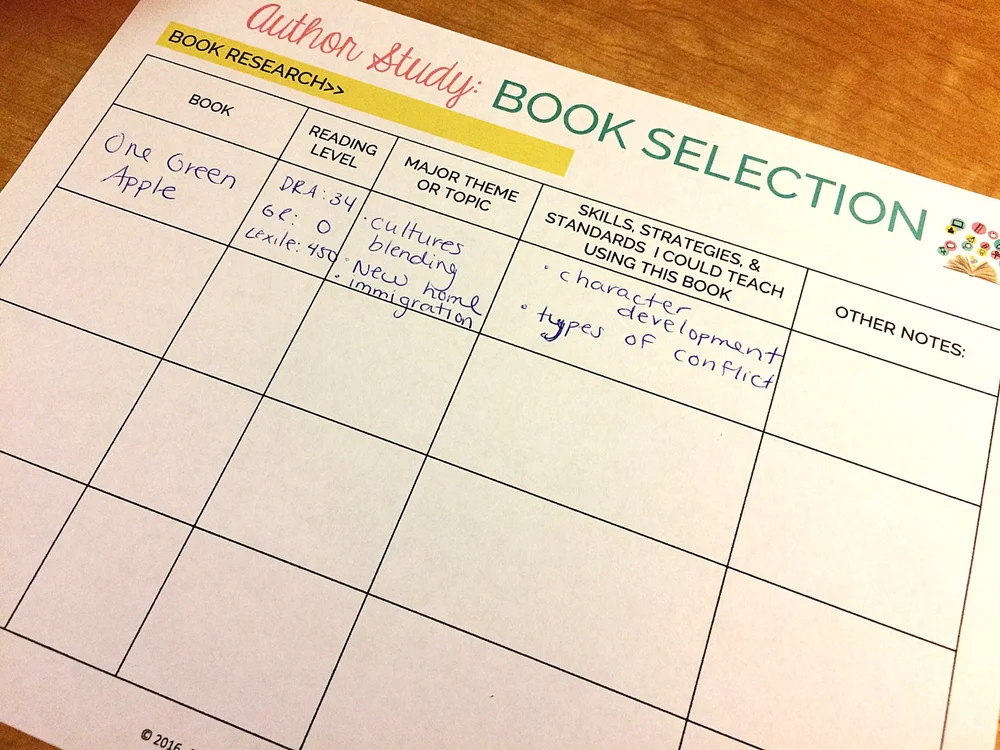 Author Study: BOOK SELECTION
BOOK RESEARCH>>
BOOK
READING
LEVEL
MAJOR THEME
OR TOPIC
SKILLS, STRATEGIES, &
STANDARDS I COULD TEACH
USING THIS BOOK
OTHER NOTES:
One Green
Apple
DRA: 34
GR: O
Lexile: 450
• cultures
blending
• New home
• immigration
• character
development
• types of conflict
© 2016